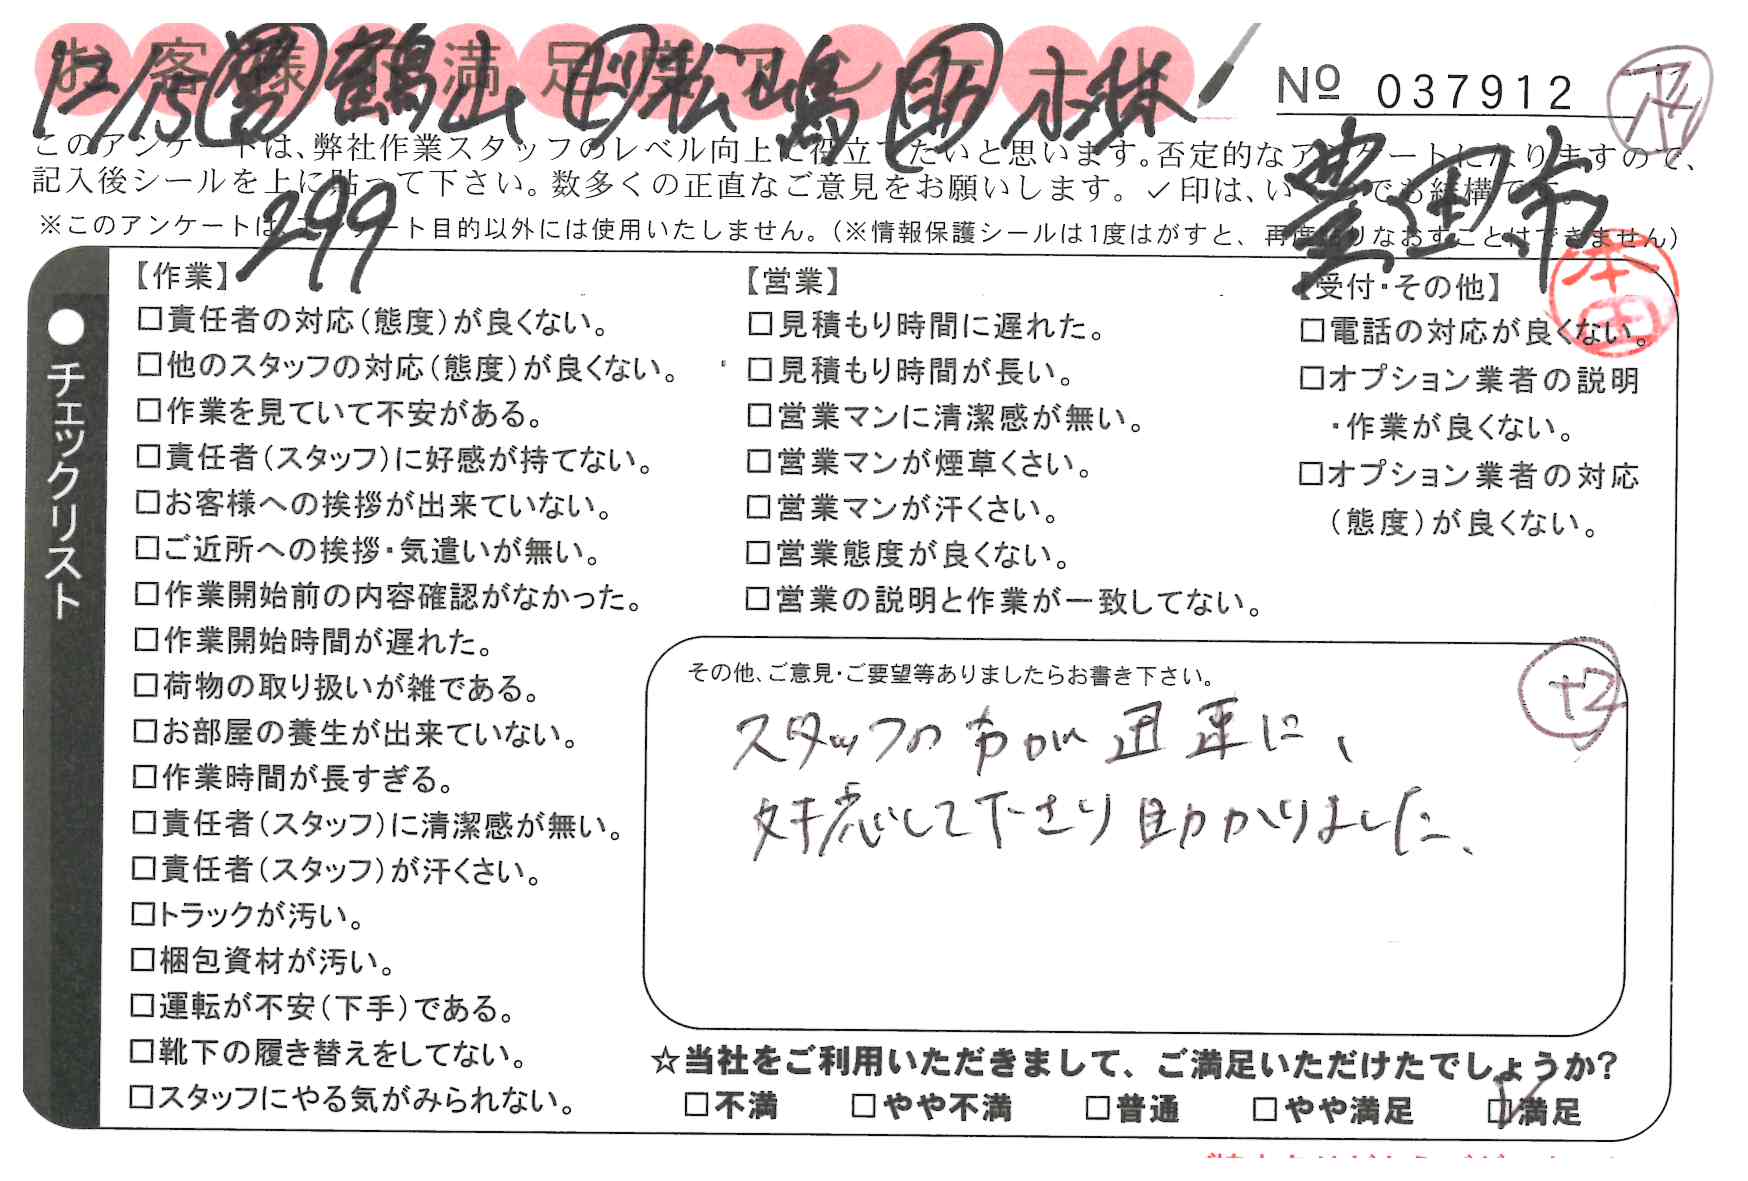 お客様不満足度アンケート
12/15 営 鶴山 ド 松嶋 助 小林
№ 037912
このアンケートは、弊社作業スタッフのレベル向上に役立てたいと思います。否定的なアンケートになりますので、
記入後シールを上に貼って下さい。数多くの正直なご意見をお願いします。✓印は、いくつでも結構です。
299
豊田市
※このアンケートは、アンケート目的以外には使用いたしません。(※情報保護シールは1度はがすと、再度貼りなおすことはできません)
本田
●チェックリスト
【作業】
□責任者の対応(態度)が良くない。
□他のスタッフの対応(態度)が良くない。
□作業を見ていて不安がある。
□責任者(スタッフ)に好感が持てない。
□お客様への挨拶が出来ていない。
□ご近所への挨拶・気遣いが無い。
□作業開始前の内容確認がなかった。
□作業開始時間が遅れた。
□荷物の取り扱いが雑である。
□お部屋の養生が出来ていない。
□作業時間が長すぎる。
□責任者(スタッフ)に清潔感が無い。
□責任者(スタッフ)が汗くさい。
□トラックが汚い。
□梱包資材が汚い。
□運転が不安(下手)である。
□靴下の履き替えをしてない。
□スタッフにやる気がみられない。
【営業】
□見積もり時間に遅れた。
□見積もり時間が長い。
□営業マンに清潔感が無い。
□営業マンが煙草くさい。
□営業マンが汗くさい。
□営業態度が良くない。
□営業の説明と作業が一致してない。
【受付・その他】
□電話の対応が良くない。
□オプション業者の説明
・作業が良くない。
□オプション業者の対応
(態度)が良くない。
その他、ご意見・ご要望等ありましたらお書き下さい。
+2
スタッフの方が迅速に、
対応して下さり助かりました。
☆当社をご利用いただきまして、ご満足いただけたでしょうか?
□不満 □やや不満 □普通 □やや満足 ☑満足